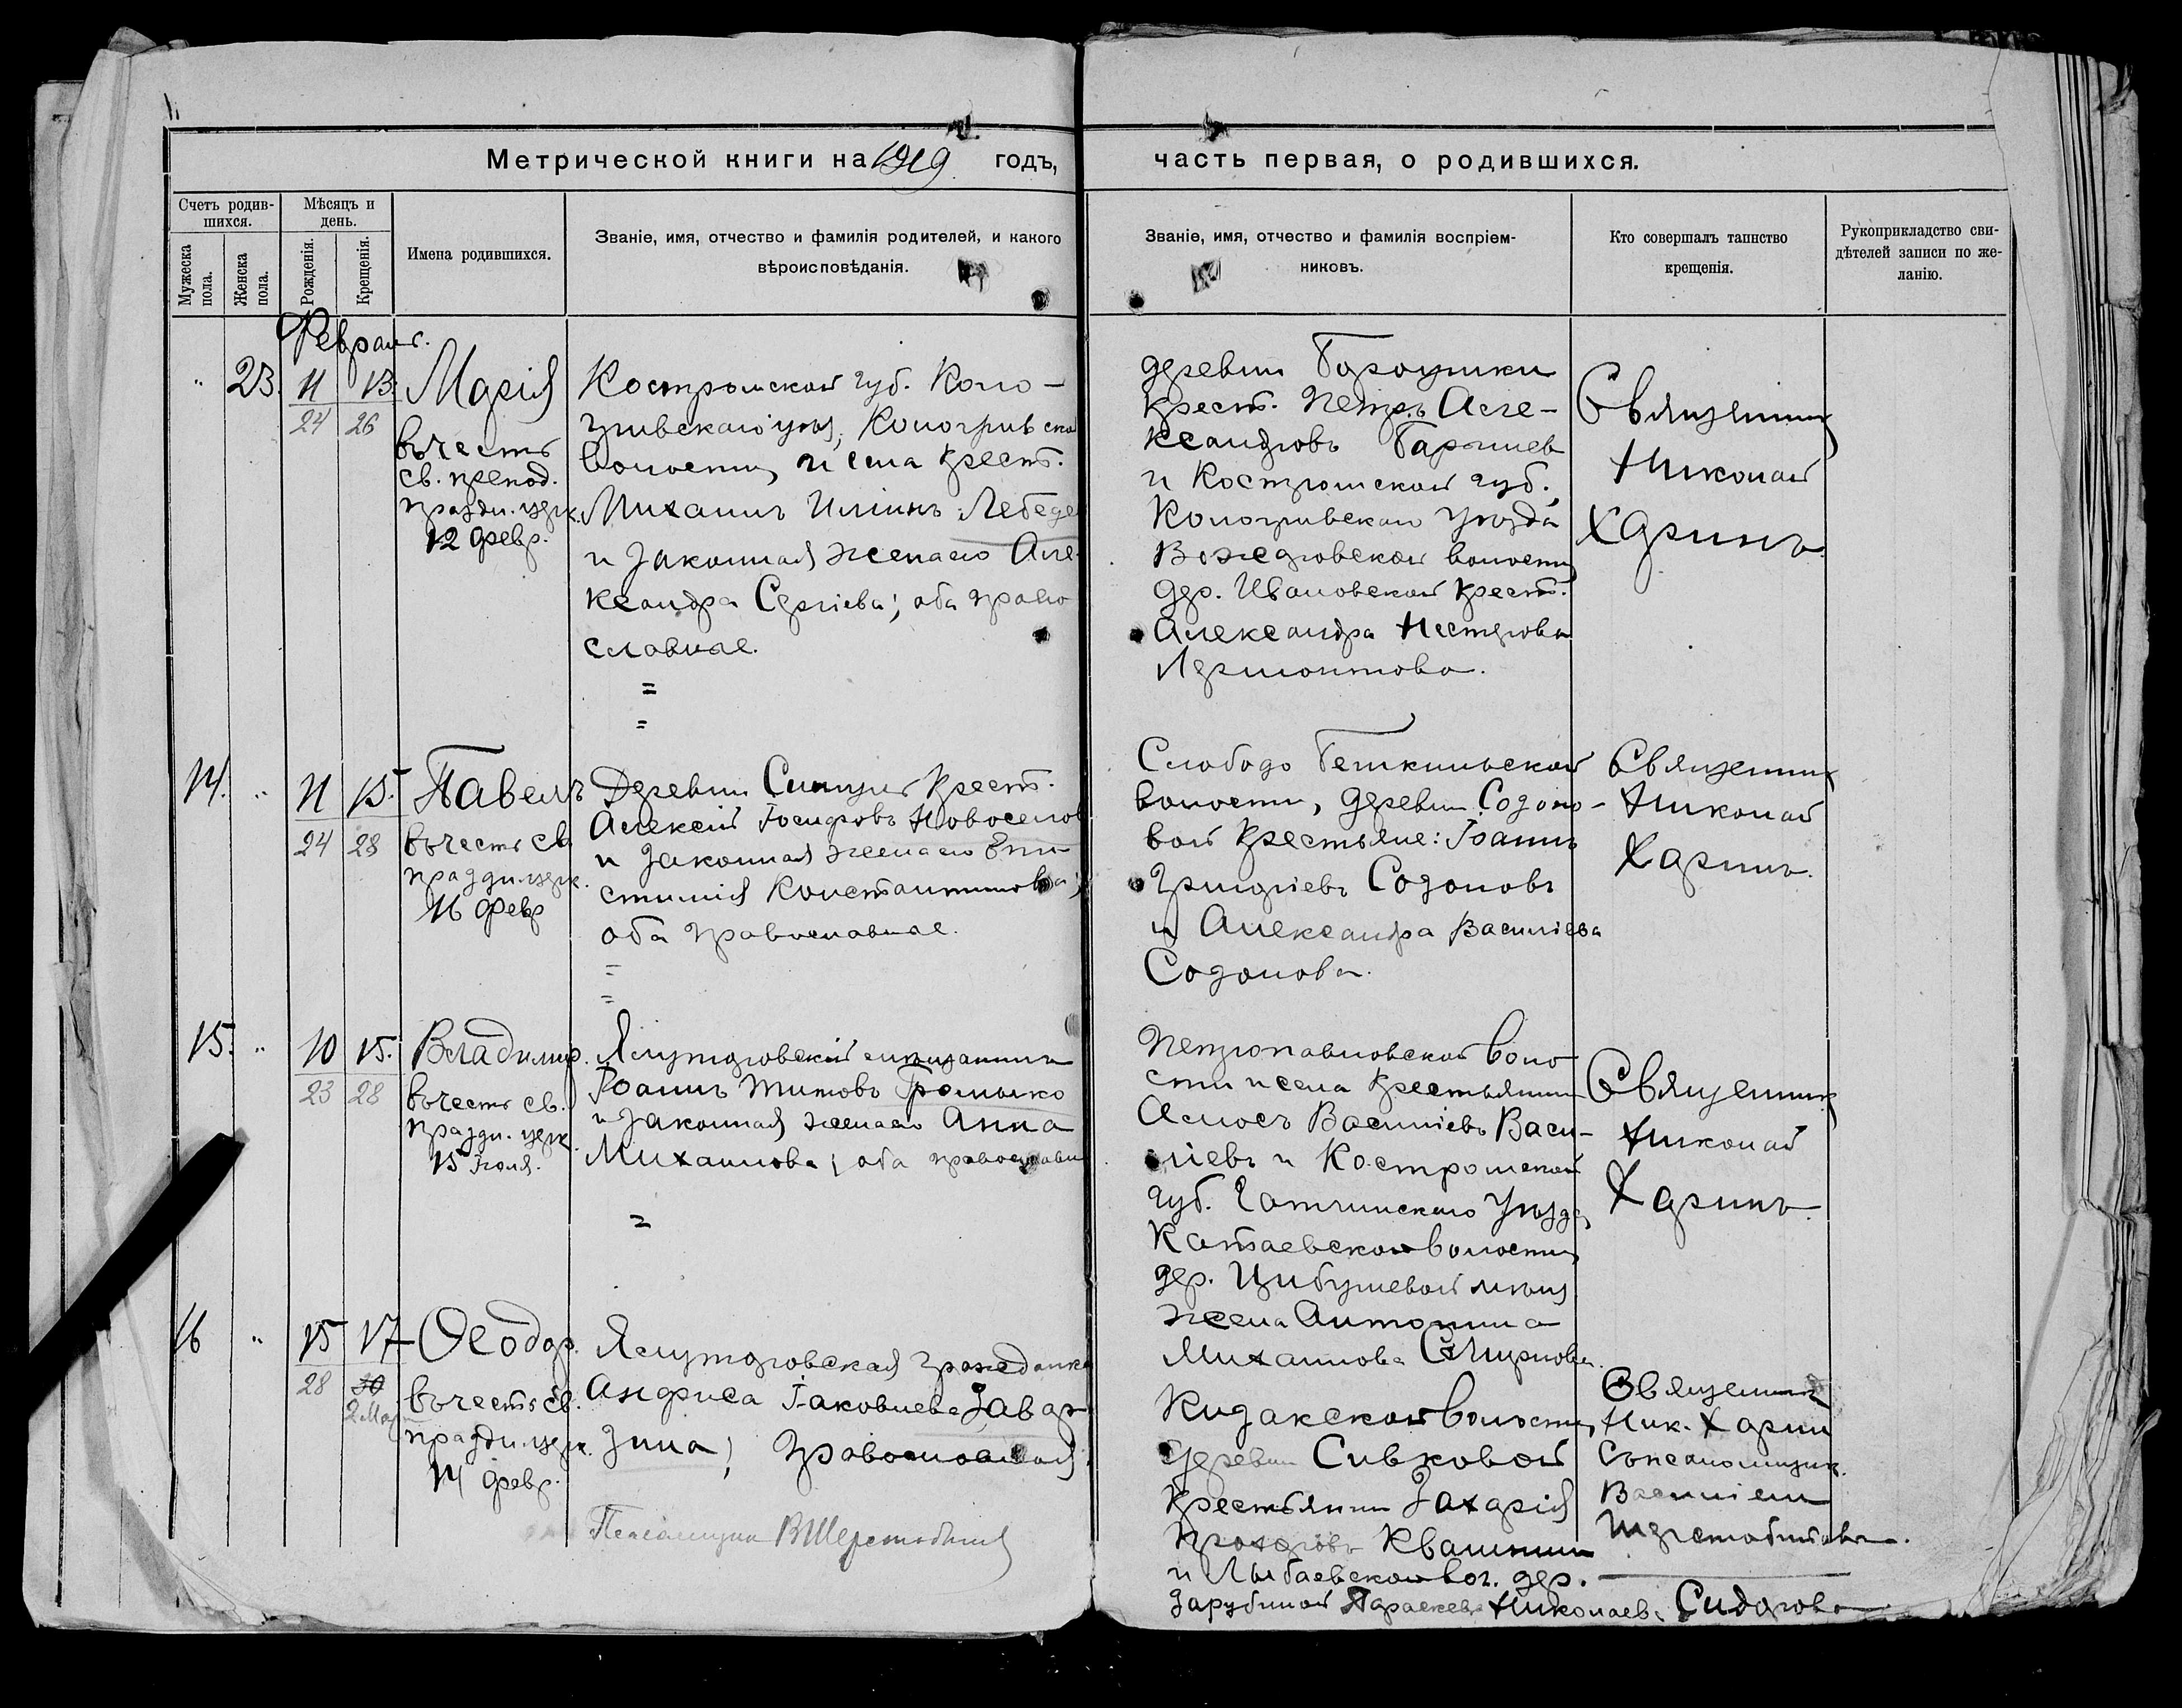 Метрической книги на 1919 годъ,
часть первая, о родившихся.
Счетъ родив-
шихся.
Мѣсяцъ и
день.
Мужеска
пола.
Женска
пола.
Рожденія.
Крещенія.
Имена родившихся.
Званіе, имя, отчество и фамилія родителей, и какого
вѣроисповѣданія.
Званіе, имя, отчество и фамилія воспріем-
никовъ.
Кто совершалъ таинство
крещенія.
Рукоприкладство сви-
дѣтелей записи по же-
ланію.
Февраль.
" 23. 11 13.
24 26
Марія
въ честь
св. препод.
праздн. церк.
12 февр.
Костромской губ. Коло-
гривскаго уѣз., Кологривской
волости, и села крест.
Михаилъ Иліинъ Лебеде
и законная жена его Але-
ксандра Сергіева; оба право
славные.
деревни
крест. Петръ Але-
ксандровъ
и Костромской губ.,
Кологривскаго уѣзда
волости
дер. Ивановской крест.
Александра Нестерова
Лермонтова.
Священникъ
Николай
Харинъ.
14. " 11 15.
24 28
Павелъ
въ честь св.
праздн. церк.
16 февр
Деревни крест.
Алексій Іосифовъ Новоселов
и законная жена его Епи-
стимія Константинова;
оба православные.
Слободо Бешкильской
волости, деревни Содомо-
вой крестьяне: Іоаннъ
Григоріевъ Содомовъ
и Александра Василіева
Содомова.
Священникъ
Николай
Харинъ.
15. " 10 15.
23 28
Владимір.
въ честь св.
праздн. церк.
15 Іюля.
Ялуторовскій мѣщанинъ
Іоаннъ Титовъ Громыко
и законная жена его Анна
Михаилова; оба православн
Петропавловской воло
сти и села крестьянинъ
Василіевъ Васи-
ліевъ и Костромской
губ. уѣзда
Катаевской волости,
дер.
жена Антонина
Михаилова Смирнова.
Священникъ
Николай
Харинъ.
16 " 15 17
28 30
2 Март
Ѳеодор.
въ честь св.
праздн. церк.
14 февр.
Ялуторовская гражданка
Анфиса Іаковлева Завар
зина; православная
Кизакской волости,
деревни Сивковой
крестьянин Захарія
Прохоровъ Квашнин
и Лыбаевской вол. дер.
Зарубиной Параскева Николаева Сидорова
Священникъ
Ник. Харин
съ псаломщик.
Василіем
Шерстобитовъ.
Псаломщик В Шерстобитов